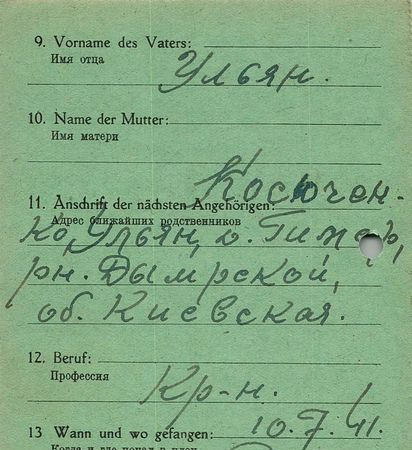 9. Vorname des Vaters:
Имя отца
Ульян.
10. Name der Mutter:
Имя матери
11. Anschrift der nächsten Angehörigen:
Адрес ближайших родственников
Косючен-
ко, Ульян, д.
рн. Дымрской,
об. Киевская.
12. Beruf:
Профессия
Кр-н.
13 Wann und wo gefangen: 10.7.41.
Когда и где попал в плен